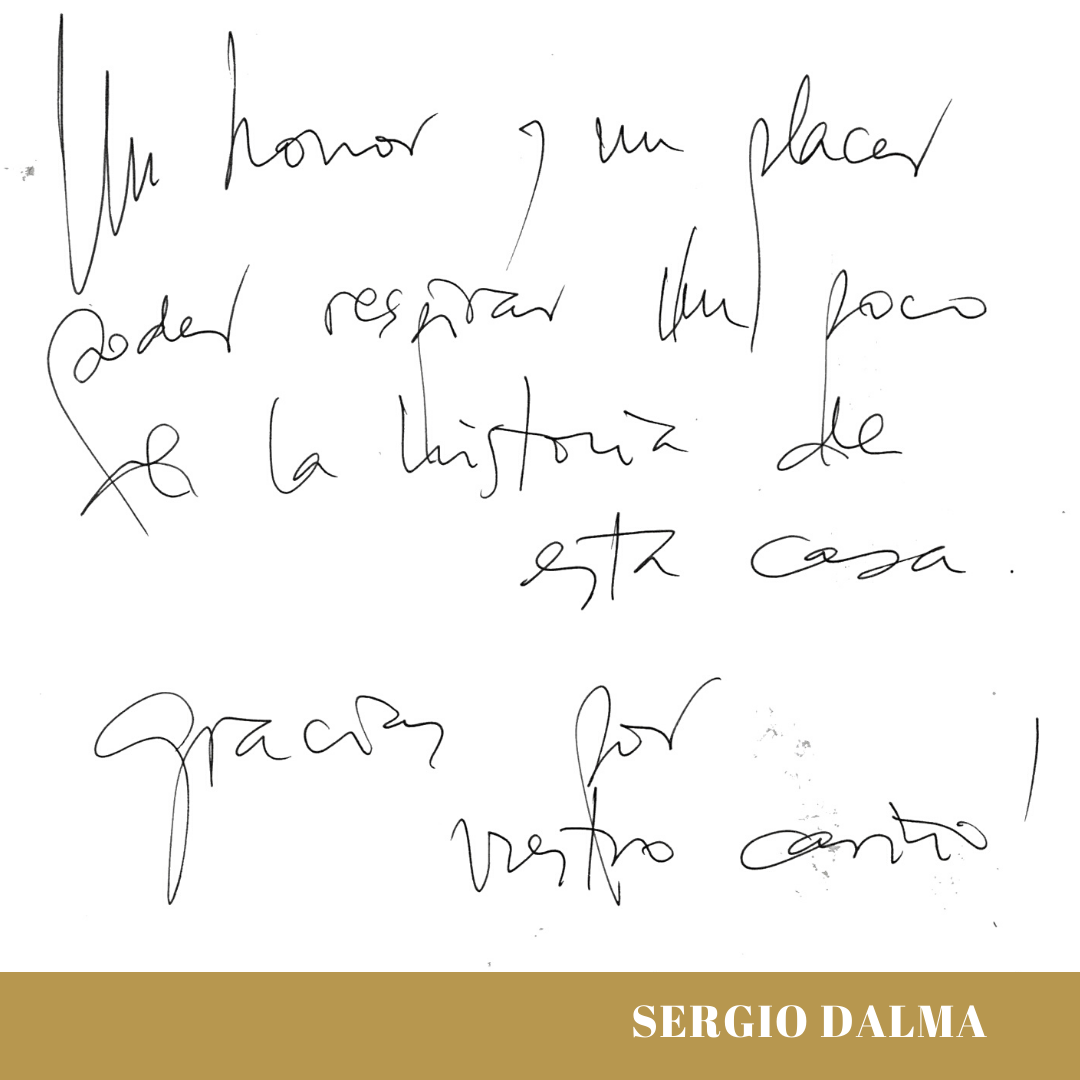 Un honor y un placer
poder respirar un poco
de la historia de
esta casa.
Gracias por
vuestro cariño!
SERGIO DALMA